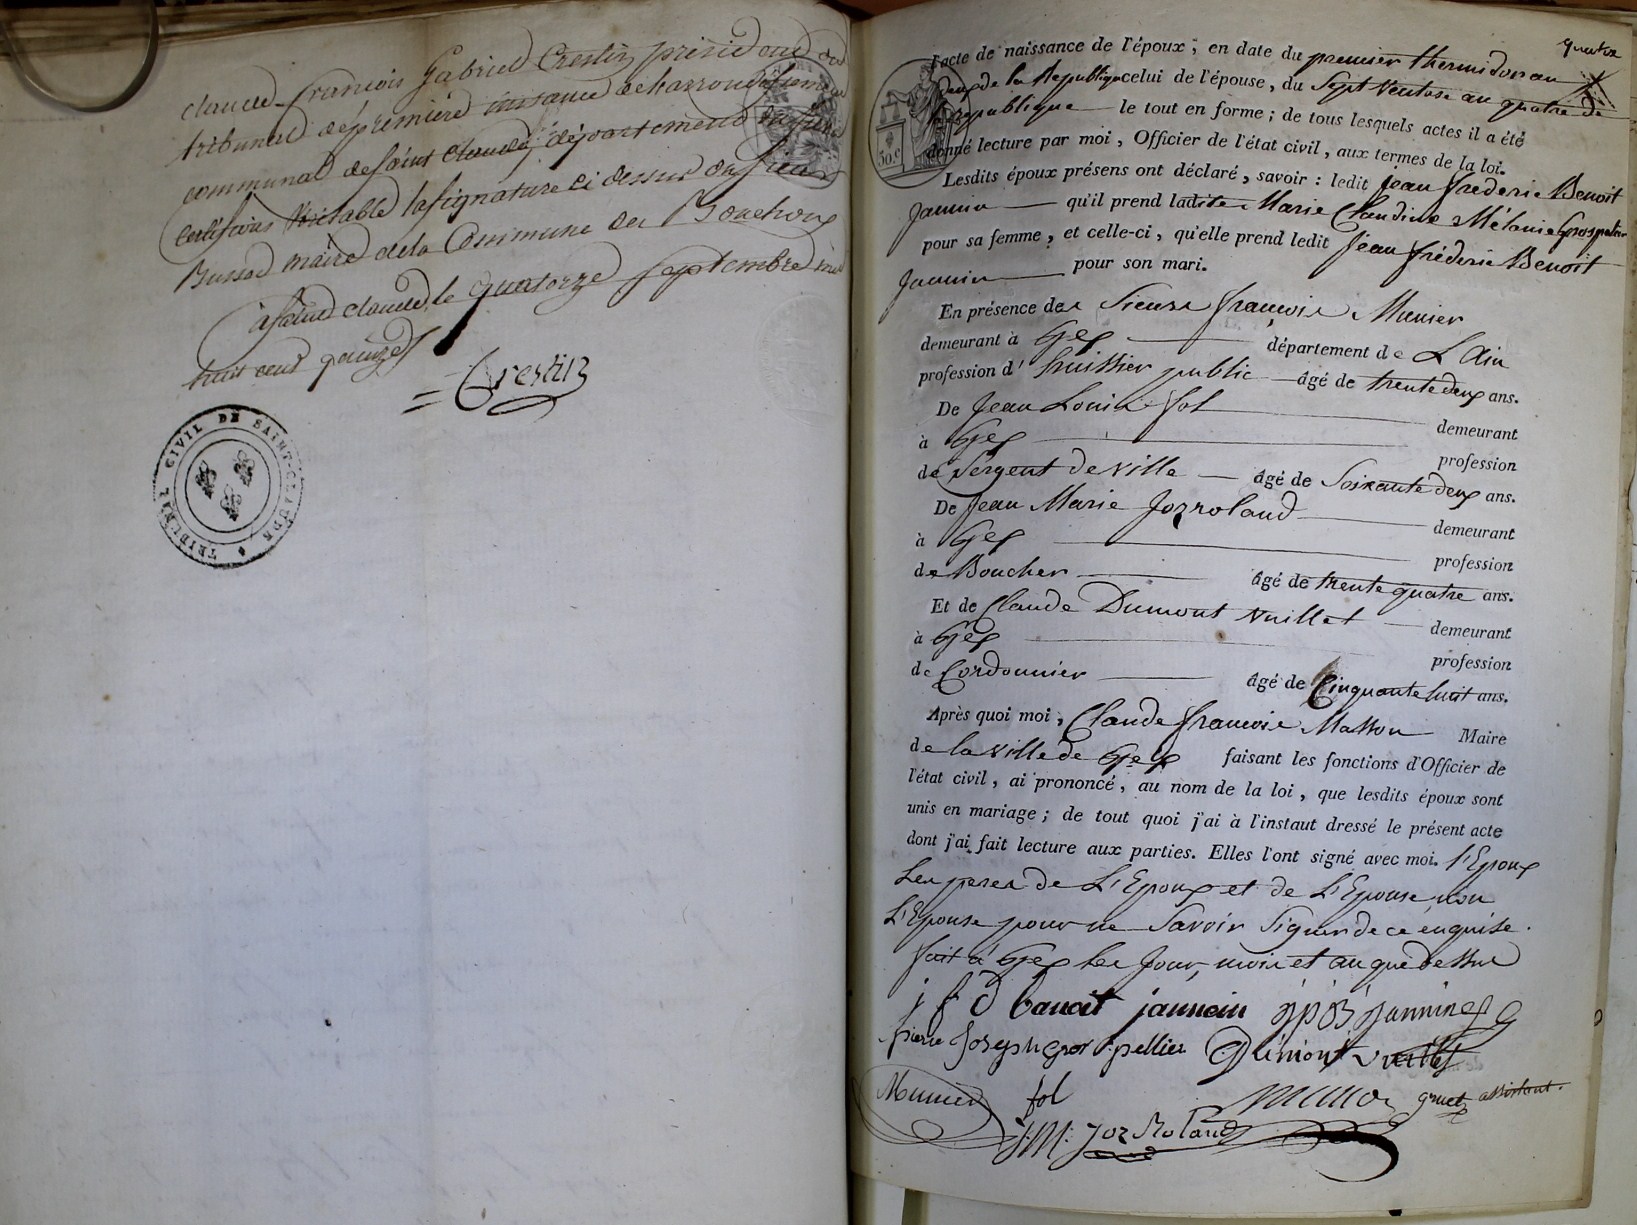 claude-francois Gabriel Crestin président du
tribunal de première instance de l'arrondissement
communal de saint claude, département du jura
certifions véritable la signature ci dessus du sieur
maire de la Commune des Bouchoux
a saint claude, le quatorze septembre mil
huit cent quinze
Crestin
TRIBUNAL CIVIL DE SAINT-CLAUDE
quatre
l'acte de naissance de l'époux ; en date du premier thermidor an
deux de la Republique celui de l'épouse, du Sept Ventose an quatre de
la republique le tout en forme ; de tous lesquels actes il a été
donné lecture par moi , Officier de l'état civil , aux termes de la loi.
50.c
Lesdits époux présens ont déclaré , savoir : ledit Jean frederic Benoit
Jannin qu'il prend ladite Marie Claudine Mélanie Grospelier
pour sa femme , et celle-ci , qu'elle prend ledit Jean fréderic Benoit
Jannin pour son mari.
En présence des Sieurs françois Munier
demeurant à Gex département de L'Ain
profession d'huissier public âgé de trente deux ans.
De Jean Louis fol demeurant
à Gex profession
de Sergent de ville âgé de Soixante deux ans.
De Jean Marie Jozroland demeurant
à Gex profession
de Boucher âgé de trente quatre ans.
Et de Claude Dumont Vuillet demeurant
à Gex profession
de Cordonnier âgé de Cinquante huit ans.
Après quoi moi , Claude françois Masson Maire
de la ville de Gex faisant les fonctions d'Officier de
l'état civil , ai prononcé , au nom de la loi , que lesdits époux sont
unis en mariage ; de tout quoi j'ai à l'instaut dressé le présent acte
dont j'ai fait lecture aux parties. Elles l'ont signé avec moi. l'Epoux
Les peres de L'Epoux et de L'Epouse, non
L'Epouse pour ne Savoir Signer de ce enquise.
fait à Gex les Jour, mois et an que dessus
j f d banoit jannein
pierre Joseph gros pellier Dumont vuillet
Munier fol gruet assistant.
J: M: Joz Roland